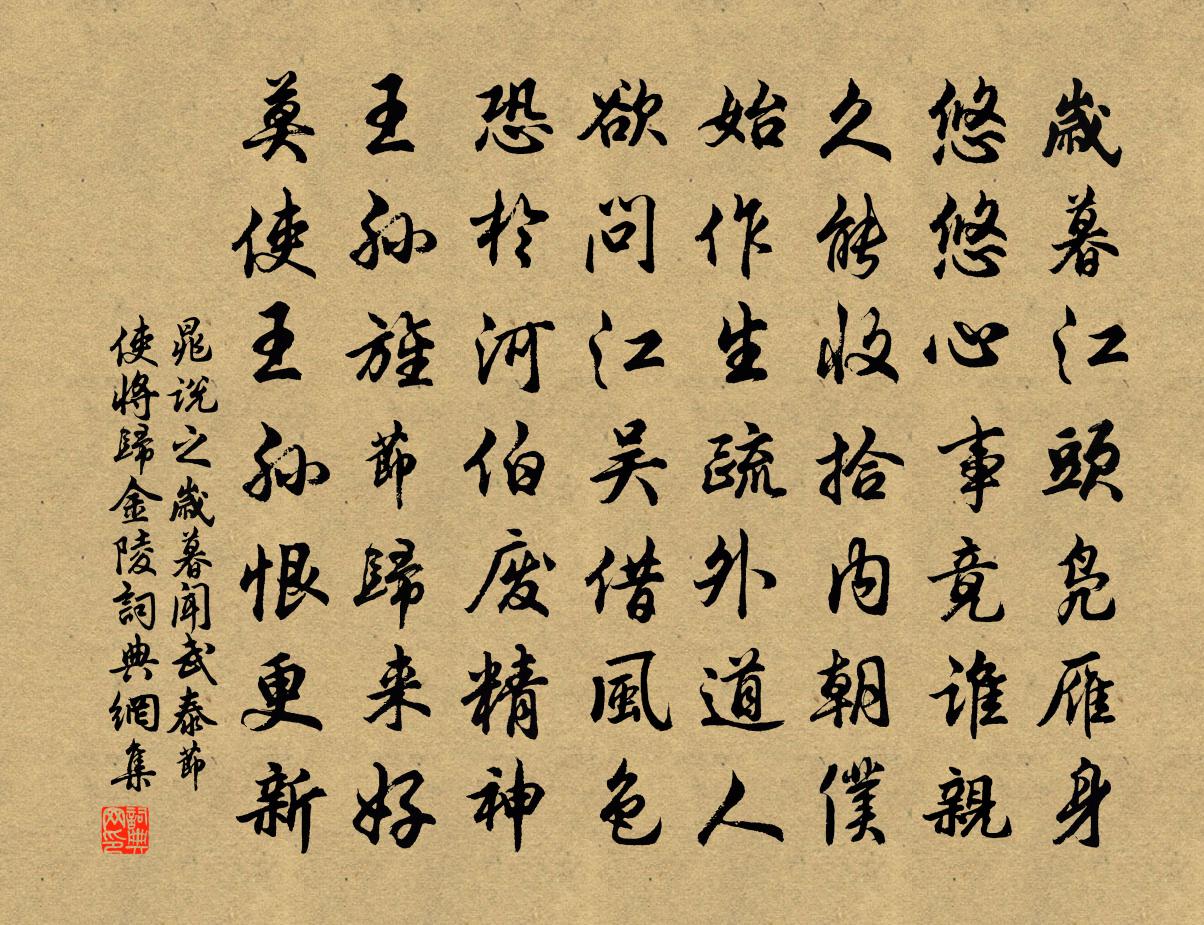 歲暮江頭鳧雁身
悠悠心事竟誰親
久能收拾內朝僕
始作生疏外道人
欲問江吳借風色
恐於河伯廢精神
王孫旌節歸来好
莫使王孫恨更新
晁说之歲暮聞武泰節
使將歸金陵詞典網集
詞典
网印